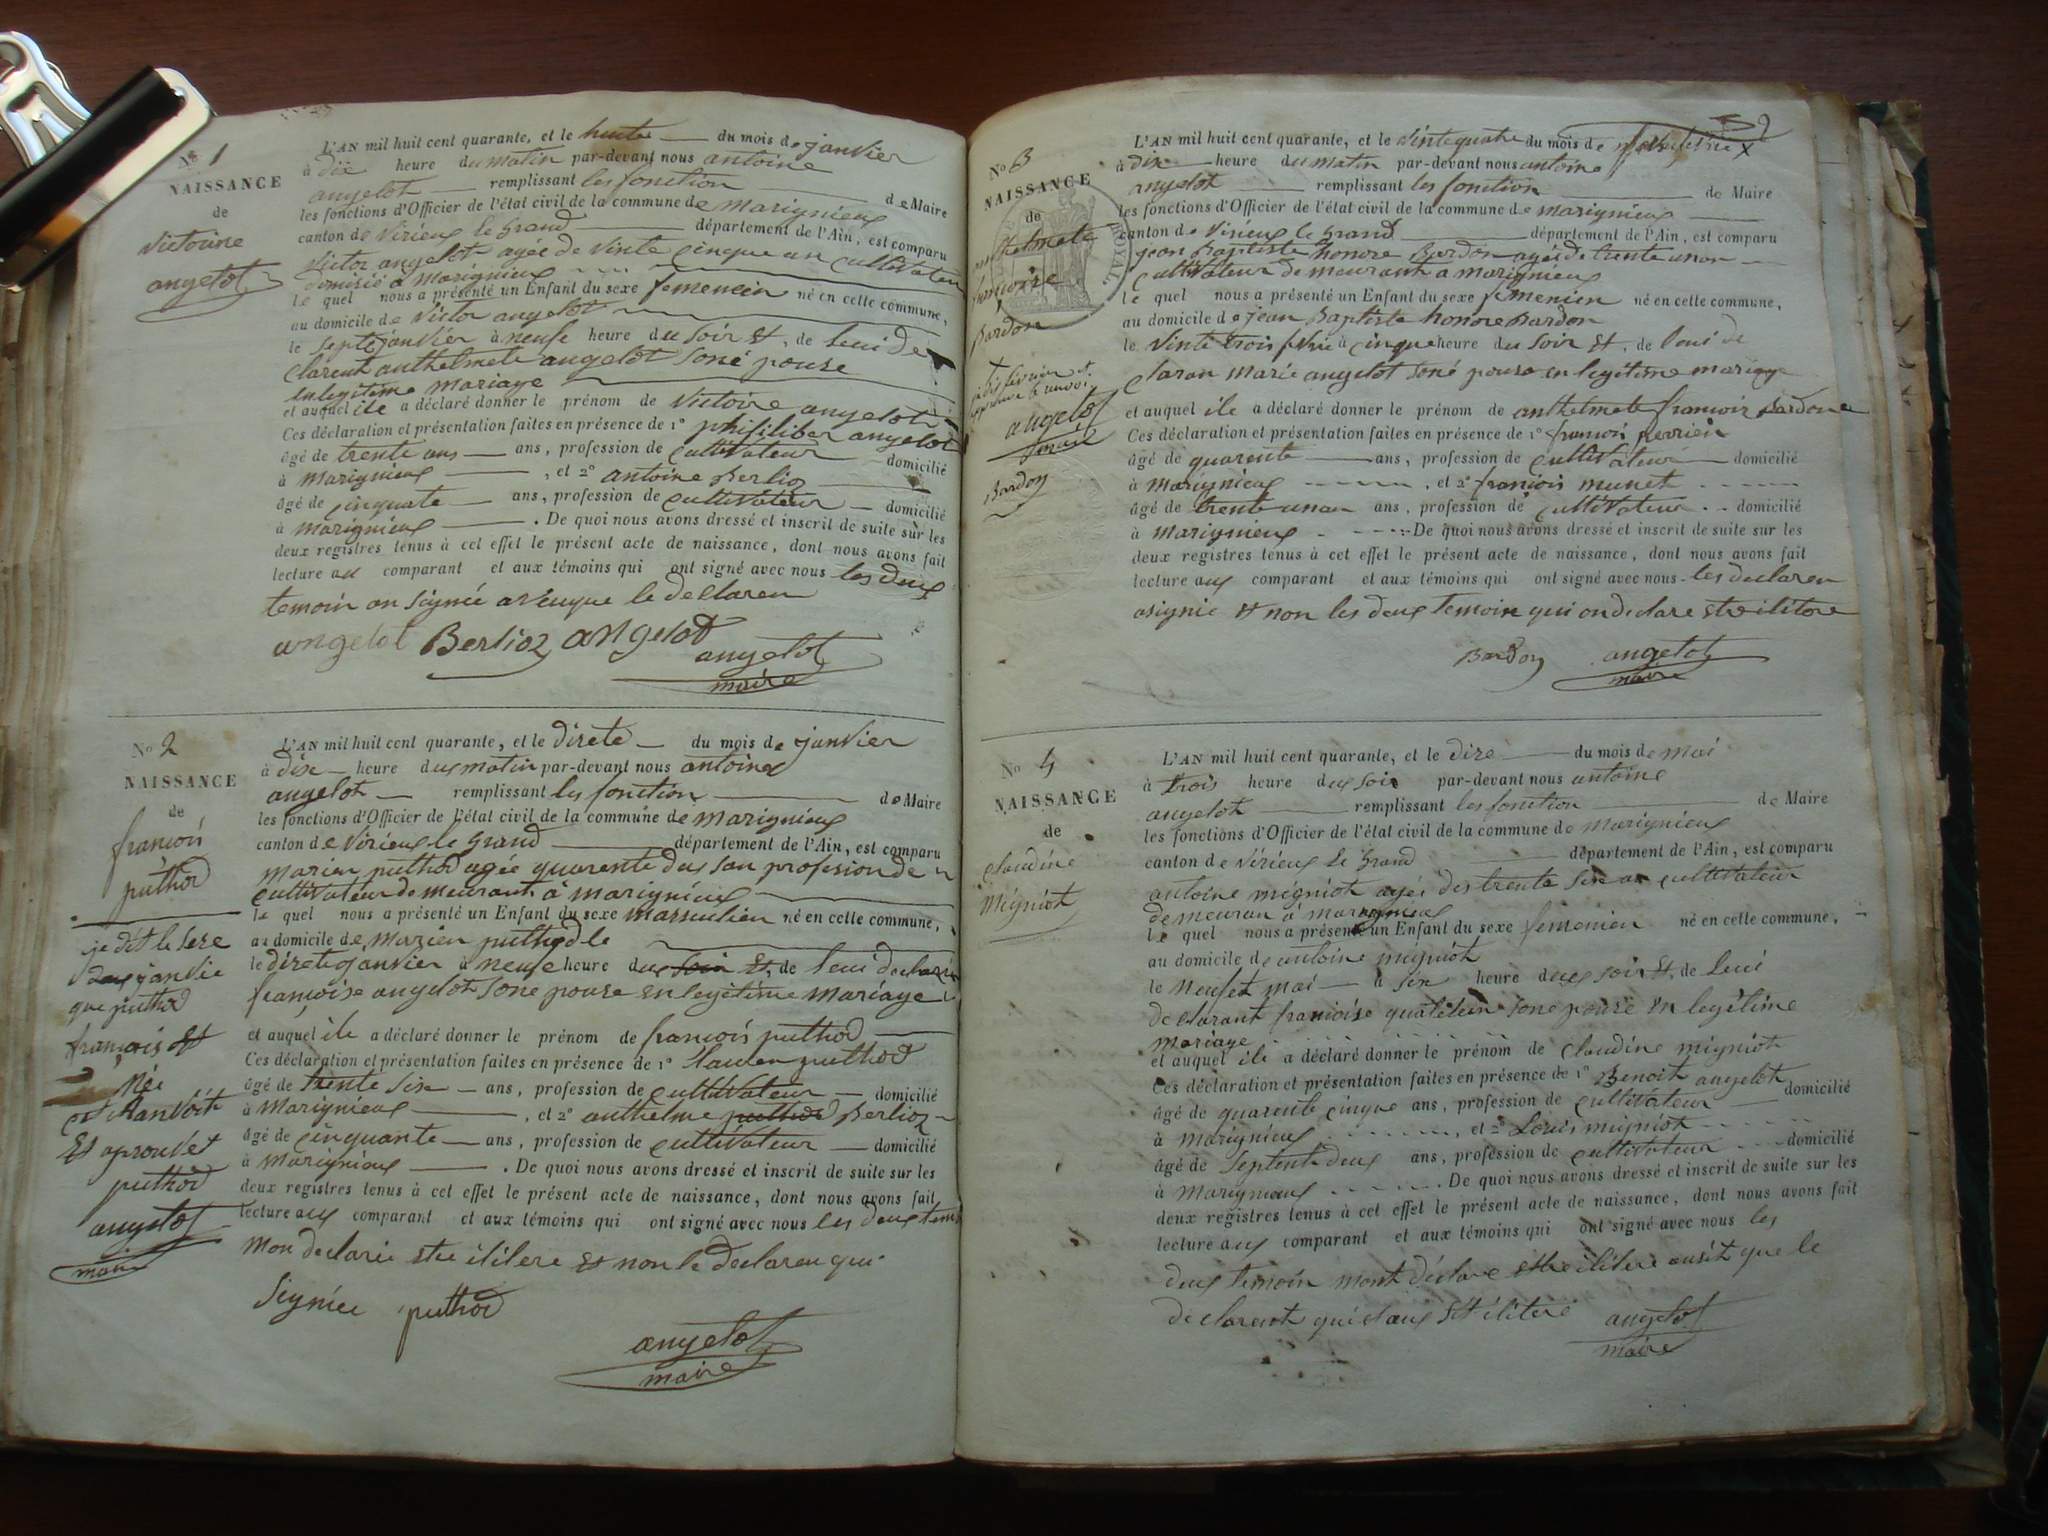 N° 1
NAISSANCE
de
victorine
angelot
L'AN mil huit cent quarante, et le huite du mois de janvier
à dix heure du matin par-devant nous antoine
angelot remplissant les fonction de Maire
les fonctions d'Officier de l'état civil de la commune de marignieux
canton de Virieux le Grand département de l'Ain, est comparu
Victor angelot agée de vinte cinque an cultivateur
à marignieux
le quel nous a présenté un Enfant du sexe né en cette commune,
au domicile de victor angelot
le septe janvier à neufe heure du soir Et, de leui dé
clarent anthelmete angelot soné pouse
enlegitime mariage
et auquel ile a déclaré donner le prénom de victoire angelot
Ces déclaration et présentation faites en présence de 1° angelot
âgé de trente ans ans, profession de cultivateur domicilié
à marignieux , et 2° antoine Berlioz
âgé de cinquate ans, profession de cultivateur domicilié
à marignieux . De quoi nous avons dressé et inscrit de suite sur les
deux registres tenus à cet effet le présent acte de naissance, dont nous avons fait
lecture au comparant et aux témoins qui ont signé avec nous les deux
temoin on signée avecque le declaren
angelot Berlioz angelot
angelot
maire
N° 2
NAISSANCE
de
francois
puthod
je dit le sere
janvie
que puthod
francois Est
Née
Et aprouvét
puthod
angelot
maire
L'AN mil huit cent quarante, et le dizete du mois de janvier
à dixe heure dux matin par-devant nous antoine
angelot remplissant les fonction de Maire
les fonctions d'Officier de l'état civil de la commune de marignieux
canton de Virieux le Grand département de l'Ain, est comparu
marien puthod agée quarente dus san profesion de
cultivateur demeurant à marignieux
le quel nous a présenté un Enfant du sexe masculien né en cette commune,
au domicile de marien puthod le
le dizete janvier à neufe heure dux soir Et, de leui declarin
françoise angelot sone pouse en legitime mariage
et auquel ile a déclaré donner le prénom de francois puthod
Ces déclaration et présentation faites en présence de 1° puthod
âgé de trente sixe ans, profession de cultivateur domicilié
à marignieux , et 2° anthelme puthod Berlioz
âgé de cinquante ans, profession de cultivateur domicilié
à marignieux . De quoi nous avons dressé et inscrit de suite sur les
deux registres tenus à cet effet le présent acte de naissance, dont nous avons fait
lecture aux comparant et aux témoins qui ont signé avec nous les deux temi
mon declarée etre ilitere Et non le declaren qui
signiée puthod
angelot
maire
2
N° 3
NAISSANCE
de
anthelmete
francoise
Bardon
angelot
maire
Bardon
L'AN mil huit cent quarante, et le vintequatre du mois de
à dix heure du matin par-devant nous antoine
angelot remplissant les fonction de Maire
les fonctions d'Officier de l'état civil de la commune de marignieux
canton de Virieux le Grand département de l'Ain, est comparu
jean Baptiste honore Bardon agée de trente unan
cultivateur demeurant a marignieux
le quel nous a présenté un Enfant du sexe femenien né en cette commune,
au domicile de jean Baptiste honore Bardon
le vinte trois à cinque heure du soir Et, de loui de
claran marie angelot soné pouse en legitime mariage
et auquel ile a déclaré donner le prénom de anthelmete Bardon
Ces déclaration et présentation faites en présence de 1° francois perrien
âgé de quarente ans, profession de cultivateur domicilié
à marignieux , et 2° francois munet
âgé de trente unan ans, profession de cultivateur domicilié
à marignieux De quoi nous avons dressé et inscrit de suite sur les
deux registres tenus à cet effet le présent acte de naissance, dont nous avons fait
lecture aux comparant et aux témoins qui ont signé avec nous les declaren
asignie Et non les deux temoin qui on declare etre ilitere
Bardon angelot
maire
N° 4
NAISSANCE
de
claudine
migniot
L'AN mil huit cent quarante, et le dixe du mois de mai
à trois heure dux soir par-devant nous antoine
angelot remplissant les fonction de Maire
les fonctions d'Officier de l'état civil de la commune de marignieux
canton de Virieux le Grand département de l'Ain, est comparu
antoine migniot agée des trente sixe an cultivateur
demeuran à marignieux
le quel nous a présenté un Enfant du sexe femenien né en cette commune,
au domicile de antoine migniot
le neufet mai à six heure dux soir Et, de leui
declarant francoise sone pouse en legitime
mariage
et auquel ile a déclaré donner le prénom de claudine migniot
Ces déclaration et présentation faites en présence de 1° Benoit angelot
âgé de quarente cinque ans, profession de cultivateur domicilié
à marignieux , et 2° Louis migniot
âgé de septente deux ans, profession de cultivateur domicilié
à marignieux . De quoi nous avons dressé et inscrit de suite sur les
deux registres tenus à cet effet le présent acte de naissance, dont nous avons fait
lecture aux comparant et aux témoins qui ont signé avec nous les
deux temoin mont déclare etre ilitere ausit que le
declarent ilitere angelot
maire